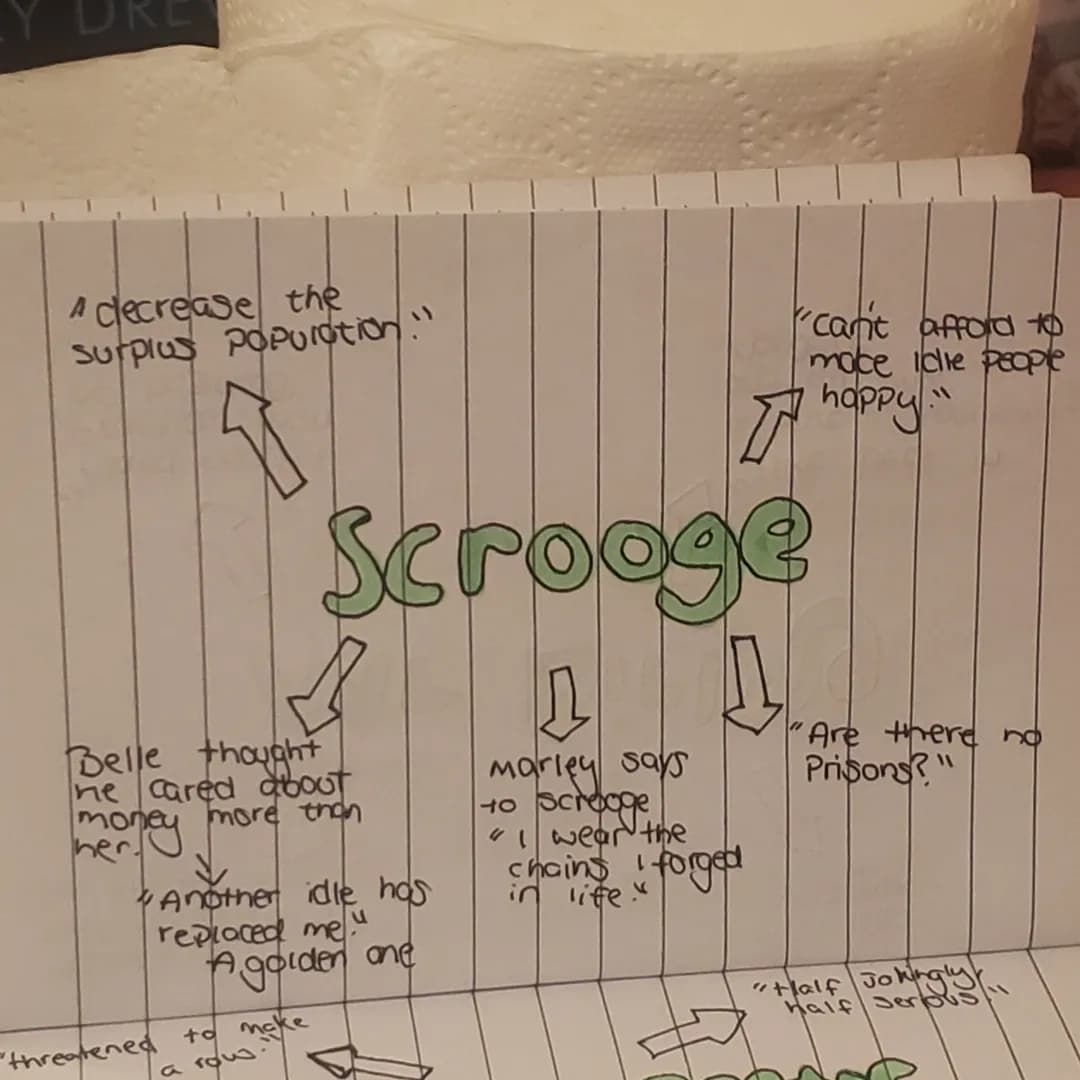 Y DRE
"decrease the
surplus population."
"can't afford to
make idle people
happy."
Scrooge
Belle thought
he cared about
money more than
her.
"Another idle has
replaced me."
A golden one
Marley says
to scrooge
"I wear the
chains I forged
in life."
"Are there no
Prisons?"
"threatened to make
a row."
"Half Jokingly
half serious."